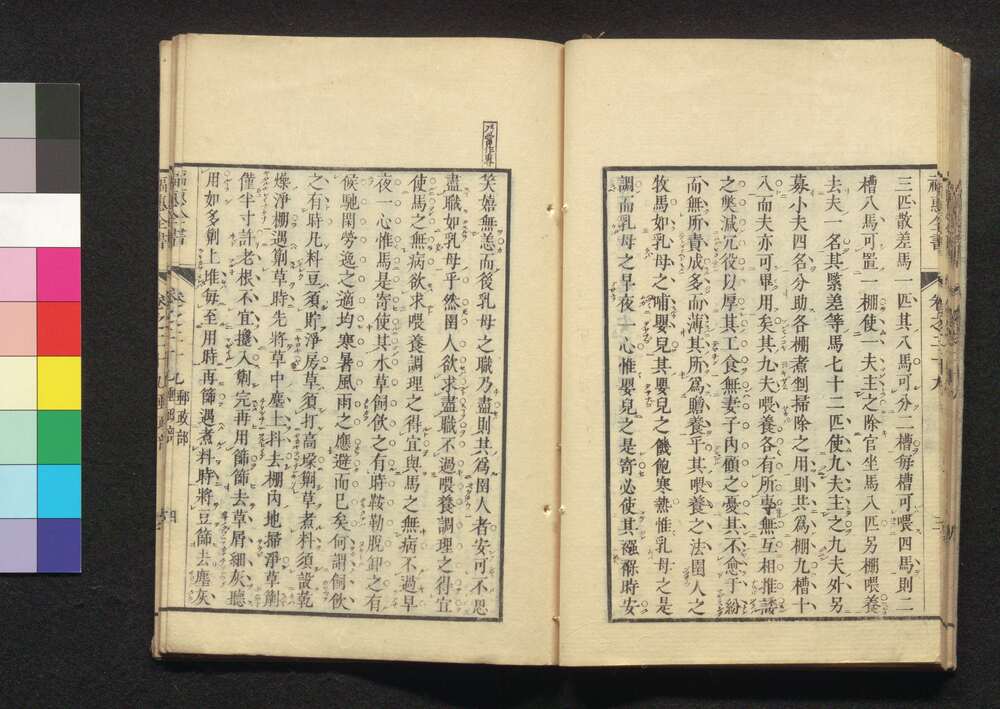 福惠全書
卷之二十九
三匹散差馬一匹其八馬可分二槽每槽可喂四馬則二
槽八馬可置一棚使一夫主之除官坐馬八匹另棚喂養
去夫一名其緊差等馬七十二匹使九夫主之九夫外另
募小夫四名分助各棚煮剉掃除之用則其爲棚九槽十
八而夫亦可畢用矣其九夫喂養各有所專無互相推諉
之獘減冗役以厚其工食無妻子内顧之憂其不愈于紛
而無所責成多而薄其所爲贍養乎其喂養之法圉人之
牧馬如乳母之哺嬰兒其嬰兒之饑飽寒熱惟乳母之是
調而乳母之早夜一心惟嬰兒之是寄必使其寤寐時安
笑嬉無恙而後乳母之職乃盡則其爲圉人者安可不思
盡職如乳母乎然圉人欲求盡職不過喂養調理之得宜
使馬之無病欲求喂養調理之得宜與馬之無病不過早
夜一心惟馬是寄使其水草飼飮之有時鞍勒脫卸之有
候馳閑勞逸之適均寒暑風雨之應避而巳矣何謂飼飮
之有時凡料豆須貯淨房草須打高垜剉草煮料須設乾
燥淨棚遇剉草時先將草中塵土抖去棚内地掃淨草剉
僅半寸許老根不宜攙入剉完再用篩篩去草屑細灰聽
用如多剉上堆每至用時再篩遇煮料時將豆篩去塵灰
福惠全書
郵政部